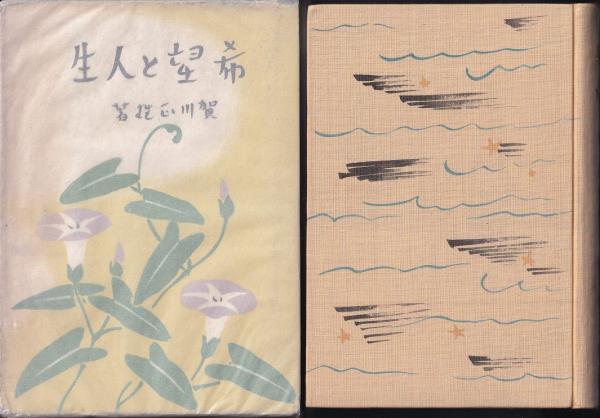 希望と人生
賀川 著